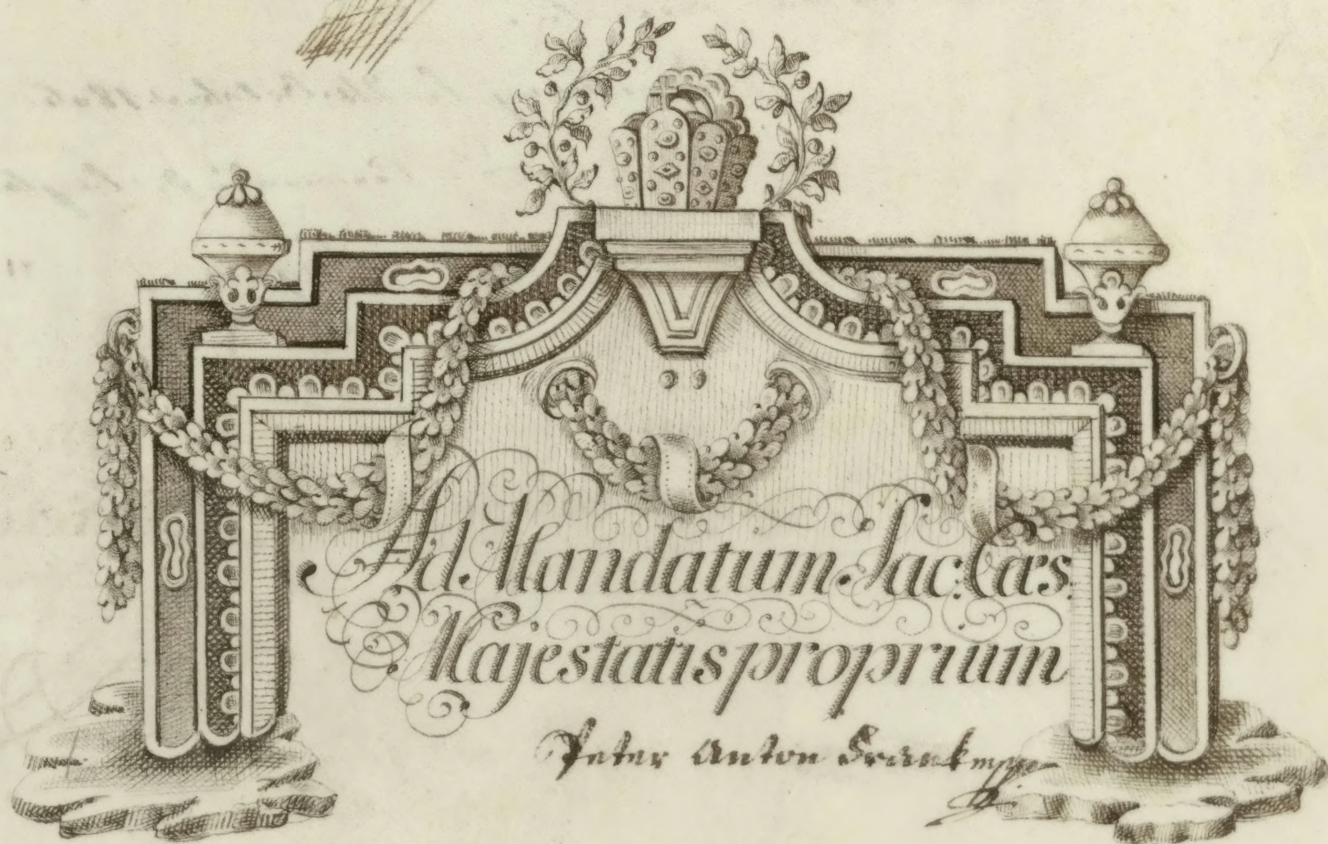 Ad Mandatum Sac: Cæs.
Majestatis proprium
Peter Anton